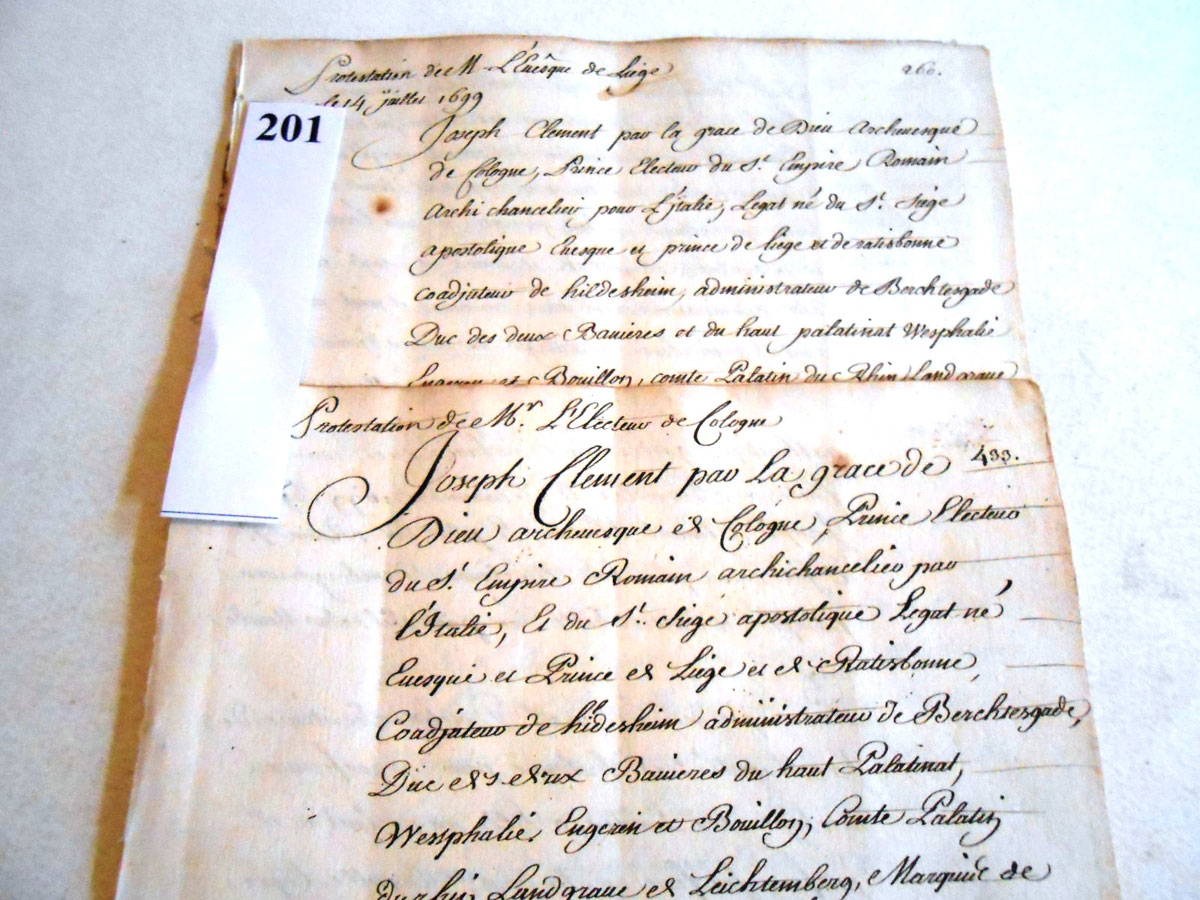 Protestation de M L'Euêsque de Liége
260.
le 14 juillet 1699
201
Joseph Clement par la grace de Dieu Archeuesque
de Cologne, Prince Electeur du St. Empire Romain
Archi chancelier pour L'jtalie, Legat né du St. Siége
apostolique Euesque et prince de liége et de ratisbonne
coadjuteur de hildesheim, administrateur de Berchtesgade
Duc des deux Bauieres et du haut palatinat Westphalie
Engeren et Bouillon, comte Palatin du Rhin Landgraue
Protestation de Mr. L'Electeur de Cologne
433.
Joseph Clement par La grace de
Dieu archeuesque de Cologne, Prince Electeur
du St. Empire Romain archichancelier par
l'Italie, Et du St. siége apostolique Legat né
Euesque et Prince de Liége et de Ratisbonne,
Coadjuteur de hildesheim administrateur de Berchtesgade,
Duc des deux Bauieres du haut Palatinat,
Westphalie, Engeren et Bouillon, Comte Palatin
du rhin, Landgraue de Leichtemberg, Marquis de